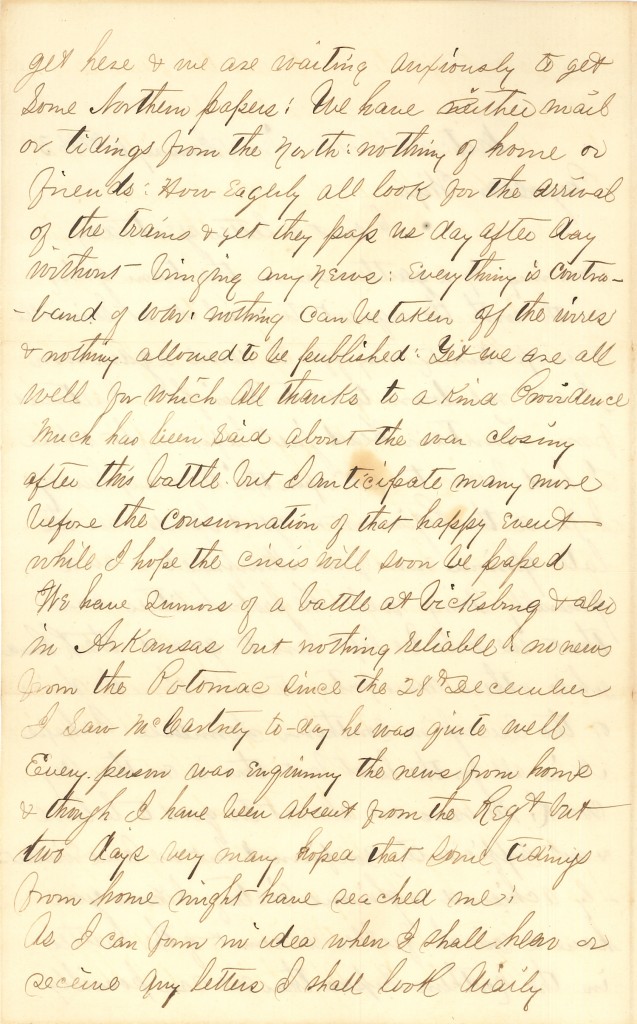 get here & we are waiting anxiously to get
Some Northern papers: We have neither mail
or tidings from the North: nothing of home or
friends: How Eagerly all look for the arrival
of the trains & yet they pass us day after day
without bringing any news: Everything is contra-
-band of war: nothing can be taken off the wires
& nothing allowed to be published: Yet we are all
well for which all thanks to a Kind Providence
Much has been said about the war closing
after this battle but I anticipate many more
before the consumation of that happy Event
while I hope the crisis will soon be passed
We have rumors of a battle at Vicksburg & also
in Arkansas but nothing reliable: no news
from the Potomac since the 28th December
I Saw McCartney to-day he was quite well
Every person was Enquiring the news from home
& though I have been absent from the Regt but
two days very many hoped that some tidings
from home might have reached me:
As I can form no idea when I shall hear or
receive any letters I shall look daily